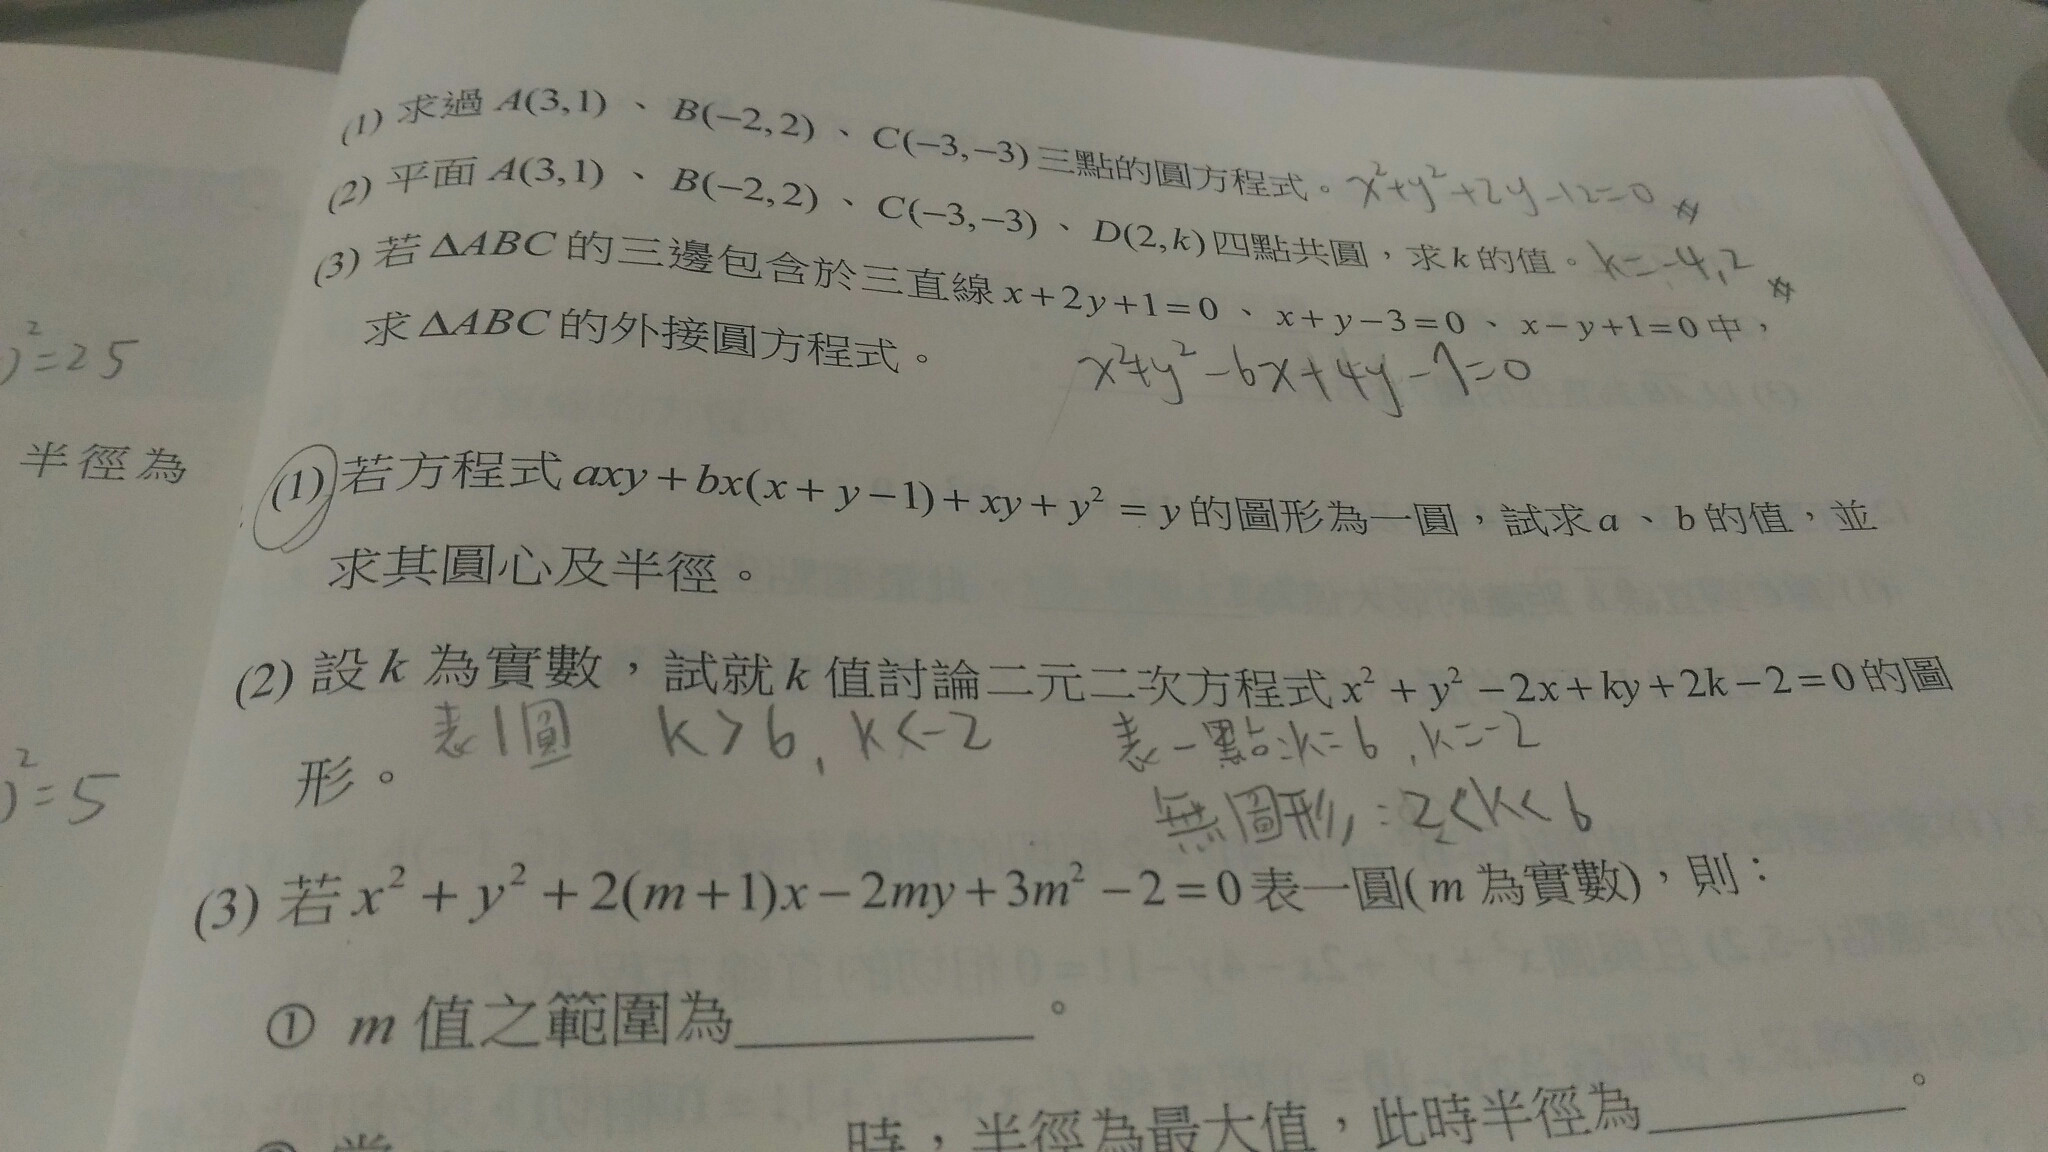 (1) 求過 A(3,1) 、 B(−2,2) 、 C(−3,−3) 三點的圓方程式。 x²+y²+2y-12=0 #
(2) 平面 A(3,1) 、 B(−2,2) 、 C(−3,−3) 、 D(2,k) 四點共圓，求 k 的值。 k=-4,2 #
(3) 若 ΔABC 的三邊包含於三直線 x+2y+1=0 、 x+y−3=0 、 x−y+1=0 中，
求 ΔABC 的外接圓方程式。 x²+y²-6x+4y-7=0
)²=25
半徑為
(1) 若方程式 axy+bx(x+y−1)+xy+y²=y 的圖形為一圓，試求 a 、 b 的值，並
求其圓心及半徑。
(2) 設 k 為實數，試就 k 值討論二元二次方程式 x²+y²−2x+ky+2k−2=0 的圖
形。 表1圓 k>6, k<-2 表一點:k=6, k=-2
無圖形,: 2<k<6
)²=5
(3) 若 x²+y²+2(m+1)x−2my+3m²−2=0 表一圓( m 為實數)，則：
① m 值之範圍為＿＿＿＿＿。
② 當＿＿＿＿＿時，半徑為最大值，此時半徑為＿＿＿＿＿。